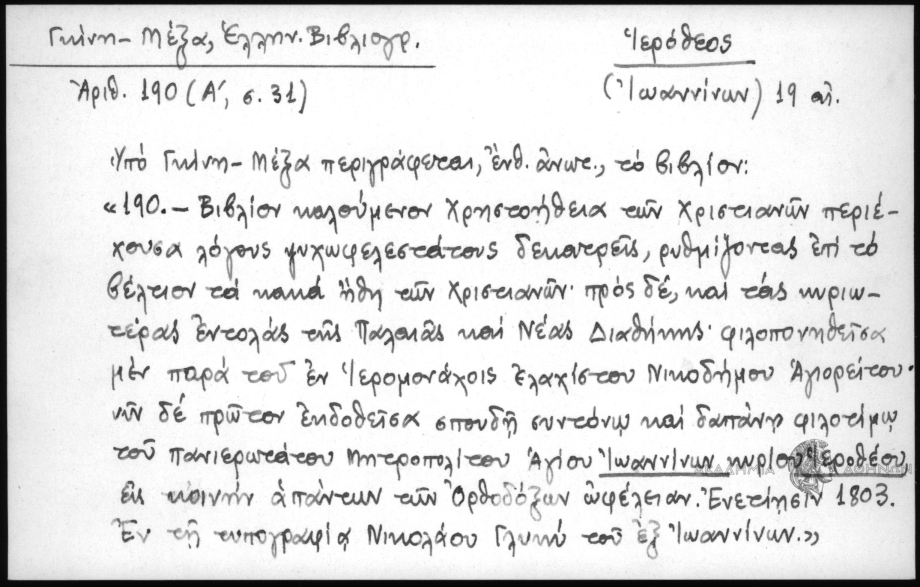 Γκίνη - Μέξα, Ἑλλην. Βιβλιογρ.
Ἱερόθεος
Ἀριθ. 190 (Α΄, σ. 31)
(Ἰωαννίνων) 19 αἰ.
Ὑπό Γκίνη - Μέξα περιγράφεται, ἔνθ. ἄνωτ., τό βιβλίον:
«190.— Βιβλίον καλούμενον Χρηστοήθεια τῶν Χριστιανῶν περιέ-
χουσα λόγους ψυχωφελεστάτους δεκατρεῖς, ρυθμίζοντας ἐπί τό
βέλτιον τά κακά ἤθη τῶν Χριστιανῶν· πρός δέ, καί τάς κυριω-
τέρας ἐντολάς τῆς Παλαιᾶς καί Νέας Διαθήκης· φιλοπονηθεῖσα
μέν παρά τοῦ ἐν Ἱερομονάχοις ἐλαχίστου Νικοδήμου Ἁγιορείτου·
νῦν δέ πρῶτον ἐκδοθεῖσα σπουδῇ συντόνῳ καί δαπάνῃ φιλοτίμῳ
τοῦ πανιερωτάτου Μητροπολίτου Ἁγίου Ἰωαννίνων κυρίου Ἱεροθέου
εἰς κοινήν ἁπάντων τῶν Ὀρθοδόξων ὠφέλειαν. Ἐνετίησιν 1803.
Ἐν τῇ τυπογραφίᾳ Νικολάου Γλυκύ τοῦ ἐξ Ἰωαννίνων.»
ΑΚΑΔΗΜΙΑ ΑΘΗΝΩΝ